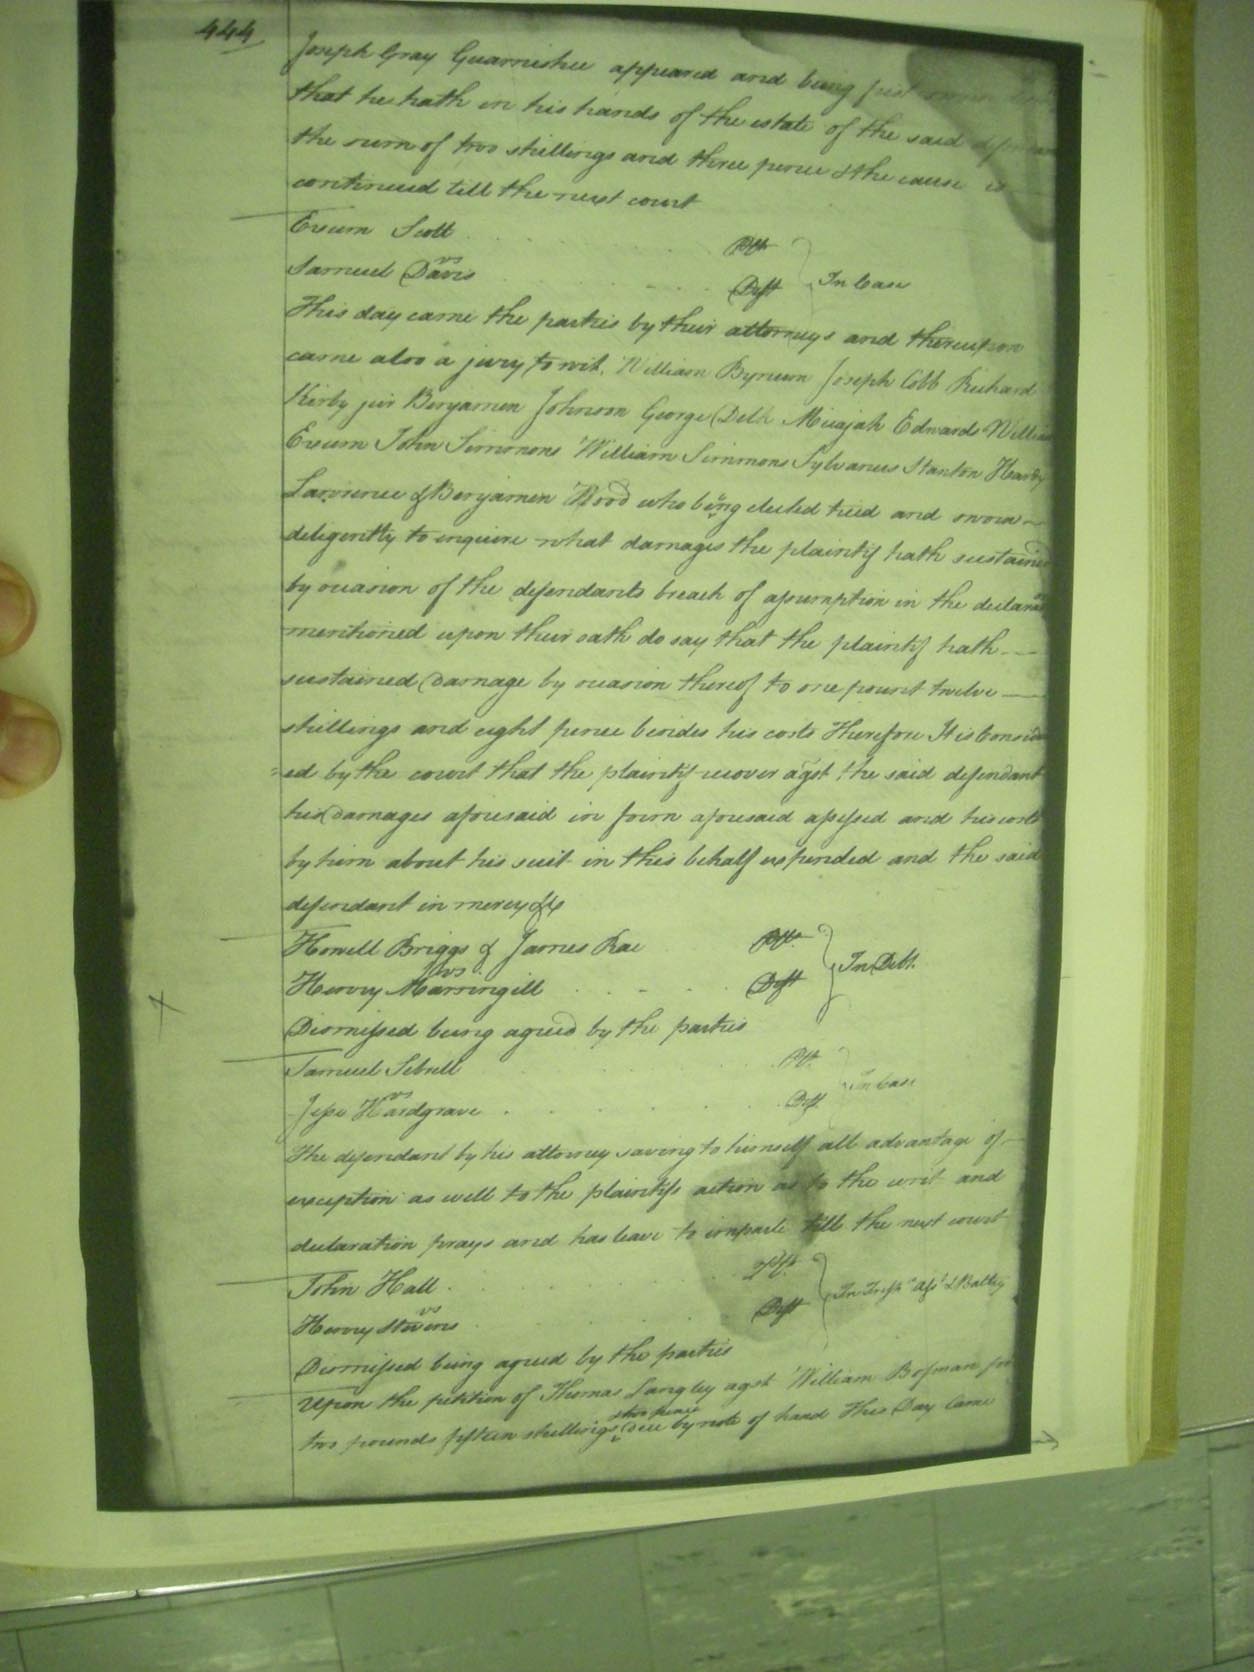 444
Joseph Gray Guarnishee appeared and being first sworn
that he hath in his hands of the estate of the said
the sum of two shillings and three pence & the cause is
continued till the next court
Exum Scott Plt
vs
Samuel Davis Deft In Case
This day came the parties by their attorneys and thereupon
came also a jury to wit, William Bynum Joseph Cobb Richard
Kirby jur Benjamen Johnson George Delk Micajah Edwards William
Exum John Simmons William Simmons Sylvanus Stanton Hardy
Lawrence & Benjamen Wood who being elected tried and sworn
deligently to enquire what damages the plaintif hath sustained
by occasion of the defendants breach of assumption in the declaration
mentioned upon their oath do say that the plaintif hath
sustained damage by occasion thereof to one pount twelve
shillings and eight pence besides his costs Therefore It is Consider
=ed by the court that the plaintif recover agst the said defendant
his damages aforesaid in form aforesaid assessed and his costs
by him about his suit in this behalf expended and the said
defendant in mercy &c
Howell Briggs & James Rae Plts
vs
Henry Marringill Deft In Debt.
X
Dismissed being agreed by the parties
Samuel Sebrell Plt
vs
Jesse Hardgrave Deft In Case
The defendant by his attorney saving to himself all advantage of
exception as well to the plaintifs action as to the writ and
declaration prays and has leave to imparle till the next court
John Hall Plt
vs
Henry Stevens Deft In Tresps Asst & Battery
Dismissed being agreed by the parties
Upon the petition of Thomas Langley agst William Bosman for
two pence
two pounds fifteen shillings due by note of hand This Day Came